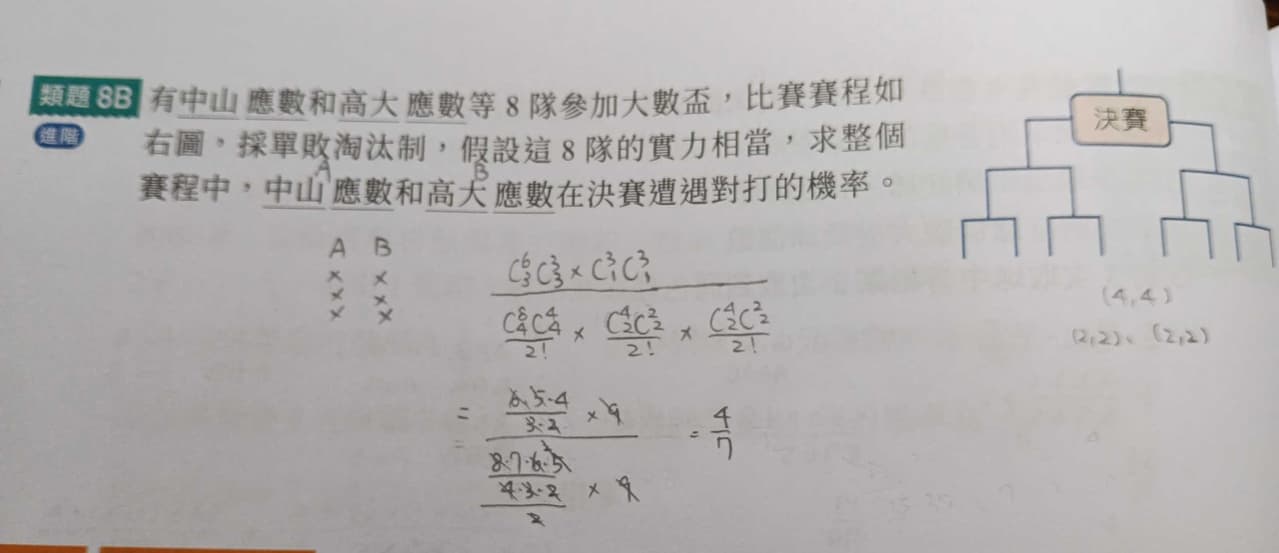 類題 8B 有中山 應數和高大 應數等 8 隊參加大數盃，比賽賽程如
進階 右圖，採單敗淘汰制，假設這 8 隊的實力相當，求整個
A B
賽程中，中山 應數和高大 應數在決賽遭遇對打的機率。
決賽
A B
× ×
× ×
× ×
C⁶₃C³₃ × C³₁C³₁
C⁸₄C⁴₄/2! × C⁴₂C²₂/2! × C⁴₂C²₂/2!
= (6·5·4/3·2 × 9)/((8·7·6·5/4·3·2)/2 × 9) = 4/7
(4,4)
(2,2)、(2,2)